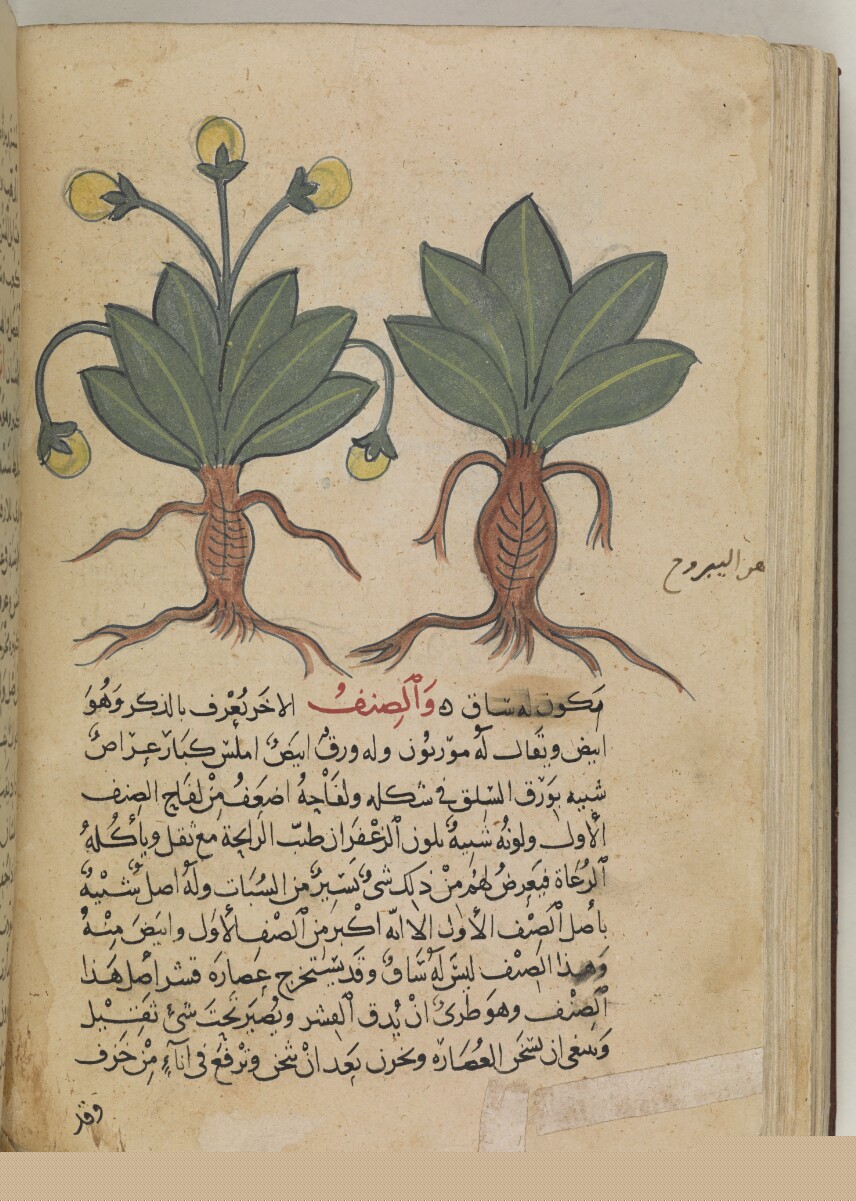 هو اليبروح
يكون له ساق ٥ وَالصِنفُ الاخر يُعْرف بالذكر وَهُوَ
ابيض ويقال لَهُ موريون وله ورق ابيضُ املس كبار عِرَاضُ
شبيه بوَرَق السَلق في شكله ولفَاحِهُ اضعَفُ مِنْ لفاح الصنف
الأول ولونهُ شَبِيهٌ بلون الزعْفران طيّب الرايحة مع ثقل ويأكلهُ
الرُعَاة فيَعرِضُ لهُم مِنْ ذلِك شىٌ يَسَيرٌ من السُبَات وَلَهُ اصل شبيهٌ
باصل الصِنْف الأول الا انهُ اكْبر مِن الصنف الأول وابيَضَ مِنهُ
وَهذا الصِنْف ليسَ لَهُ سَاقٌ وقد يستخرج عصَارة قشر اصل هَذا
الصِنْف وهوَ طرىٌ انْ يُدق القِشر ويُصَير تحتَ شىٍ ثقيل
وينبغى ان يسخن العُصَارة ويخزن بَعد انْ تثخن وترْفَعْ فى انآءٍ مِنْ خزف
وقد